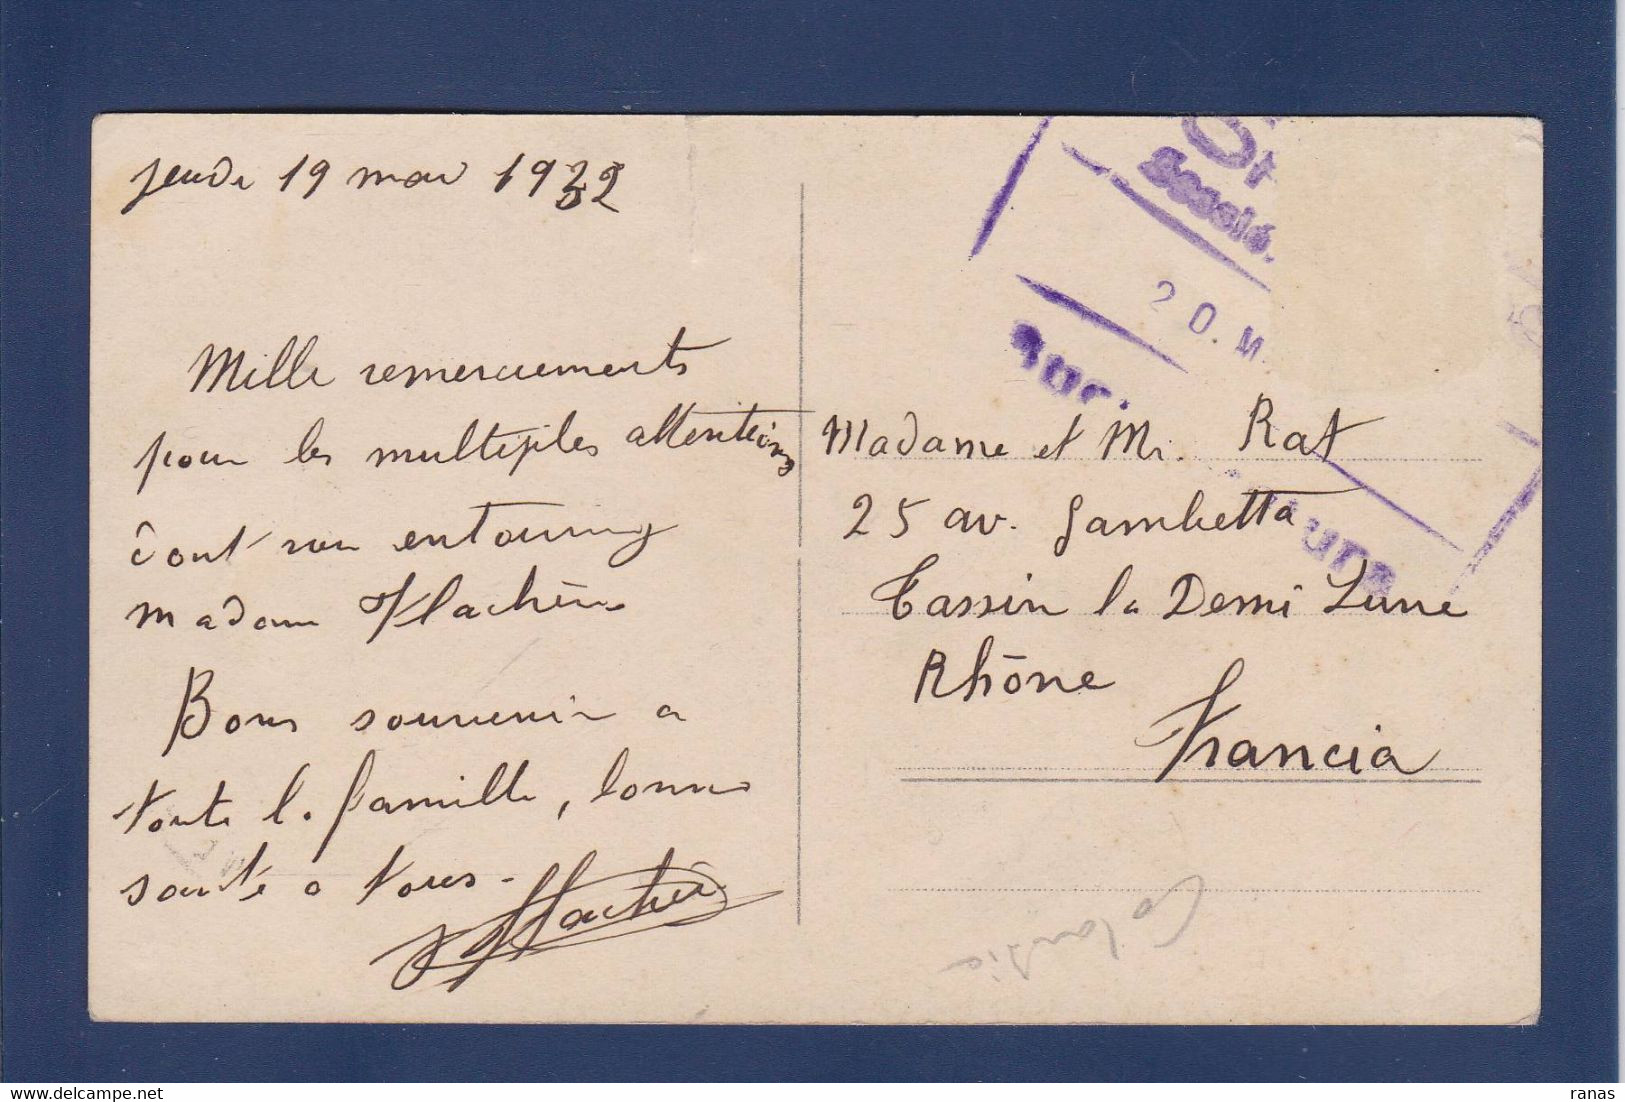 jeudi 19 mai 1932
Mille remerciements
pour les multiples attentions
dont
madame Flachère
Bons souvenir a
toute la famille, bonne
santé a tous -
Flachère
Madame et Mr. Rat
25 av. Gambetta
Tassin la Demi Lune
Rhône
Francia
20. M
delcampe.net
ranas